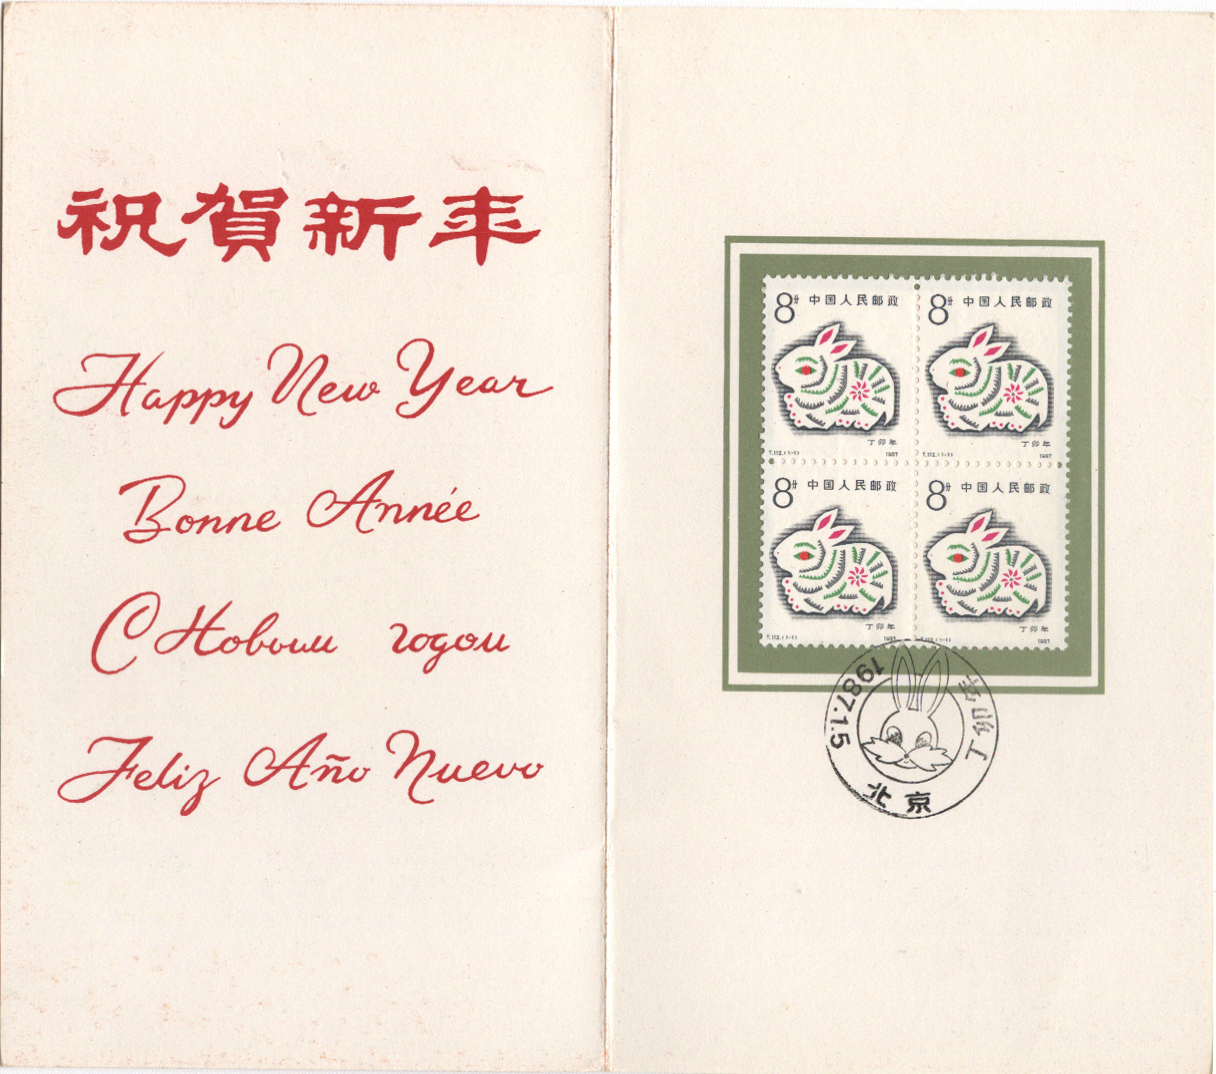 祝賀新年
Happy New Year
Bonne Année
С Новым годом
Feliz Año Nuevo
8分 中国人民邮政
丁卯年
T.112.(1-1) 1987
8分 中国人民邮政
丁卯年
T.112.(1-1) 1987
8分 中国人民邮政
丁卯年
T.112.(1-1) 1987
8分 中国人民邮政
丁卯年
T.112.(1-1) 1987
1987.1.5
丁卯年
北京